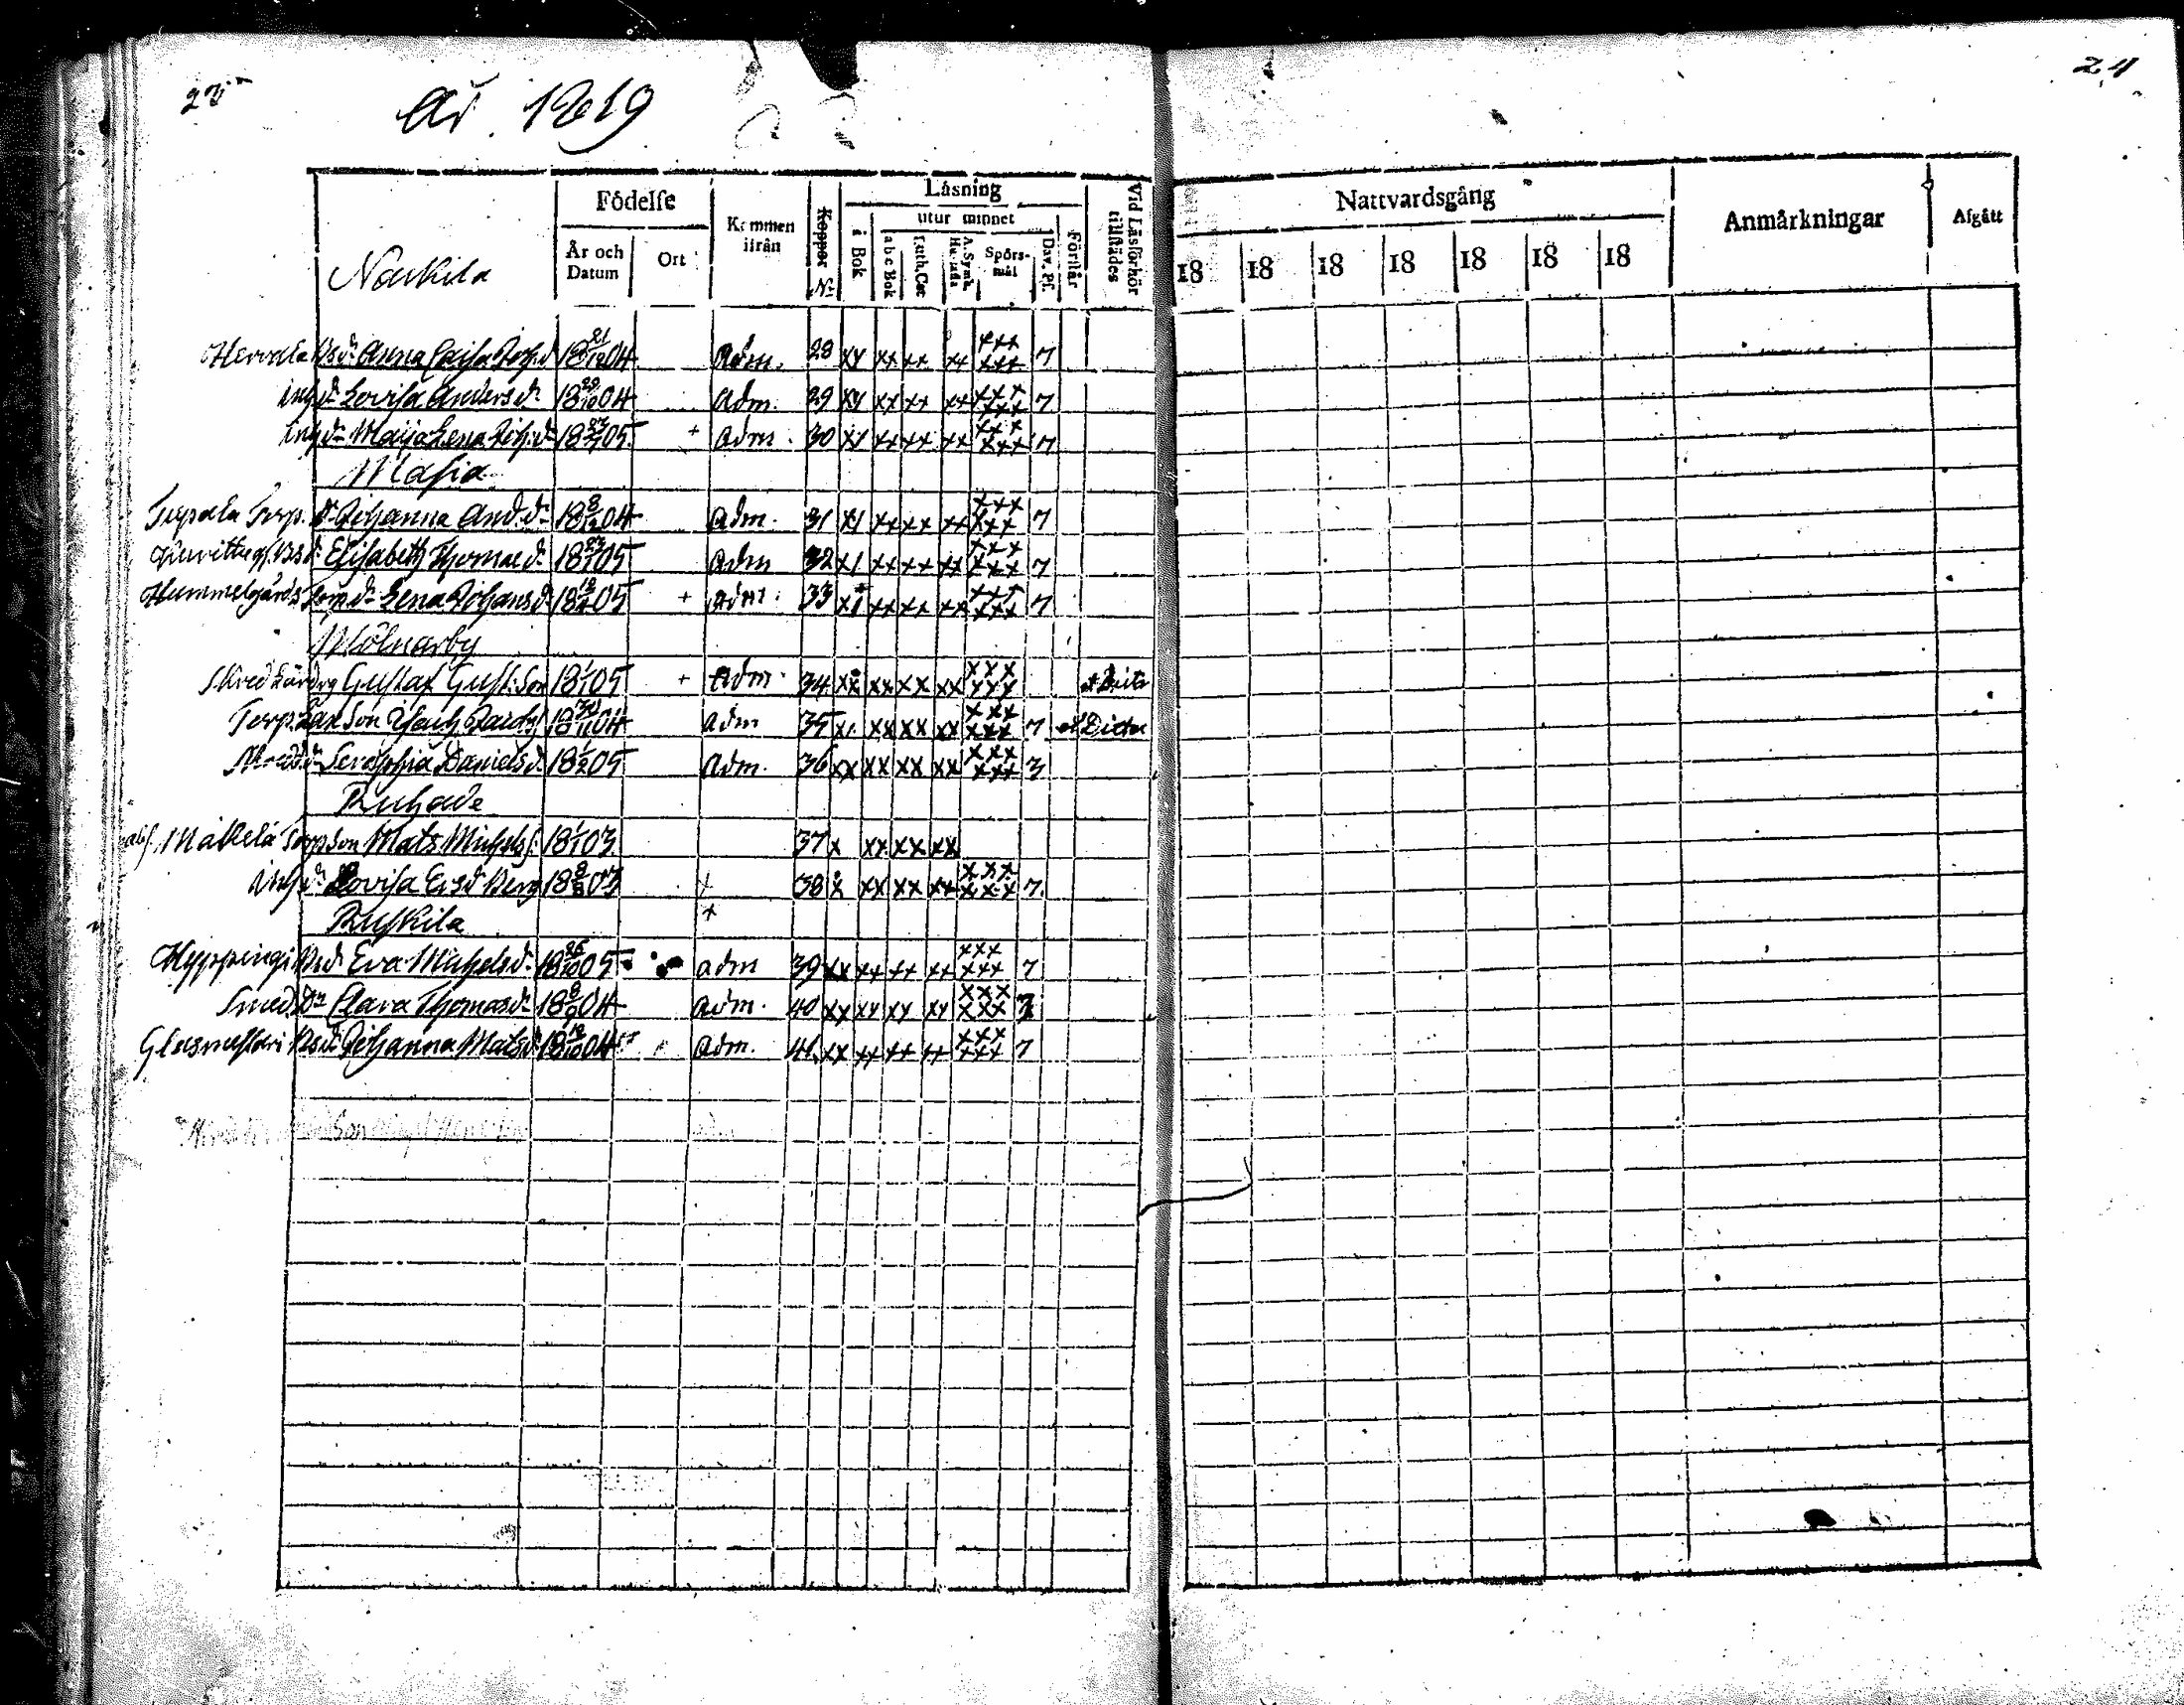 23
År 1819
24
Födelse
Kommen ifrån
Koppor
Nr
Läsning
utur minnet
i Bok
a b c Bok
Luth. Cat
A. Symb.
Spörs-mål
Dav. Ps.
Förstår
Vid Läsförhör tillstädes
Nattvardsgång
Anmärkningar
Afgått
År och Datum
Ort
18 18 18 18 18 18 18
Naukila
Anna Caisa Joh.d 18 21/12 04 Adm. 28 xx xx xx xx xxx xxx 7
Inh. dr Lovisa Anders dr 18 04 Adm. 29 xx xx xx xx xxx xxx 7
Inh. dr Maja Lena Joh. dr 18 05 + Adm. 30 xx xx xx xxx xxx 7
Masia
Torp. dr Johanna And. dr 18 8/12 04 Adm. 31 xx xx xx xxx xxx 7
Elisabeth Thomae dr 18 05 Adm 32 xx xx xx xxx xxx 7
Hummelgårds Torp dr Lena Johans dr 18 05 + Adm. 33 xx xx xx xxx xxx 7
Mölnarby
Gustaf Gust. Son 18 1/1 05 + Adm. 34 xx xx xx xx xxx xxx
Torp. Son 18 04 Adm 35 xx xx xx xxx xxx 7
Serafphia Daniels d. 18 05 Adm. 36 xx xx xx xx xxx xxx 3
Ruhade
Mäkelä Torp Son Mats Michels S. 18 1/1 03 37 x xx xx xx
Inh. dr Lovisa Ersdr Berg 18 03 + 38 x xx xx xx xxx xxx 7
Ruskila +
Hyppingi Bs d. Eva Michels dr. 18 26/10 05 adm 39 xx xx xx xx xxx xxx 7
Smed. Dr Clara Thomas dr 18 8/9 04 adm. 40 xx xx xx xx xxx xxx 7
Glasmästari Bs dr Johanna Mats d. 18 04 adm. 41 xx xx xx xx xxx xxx 7